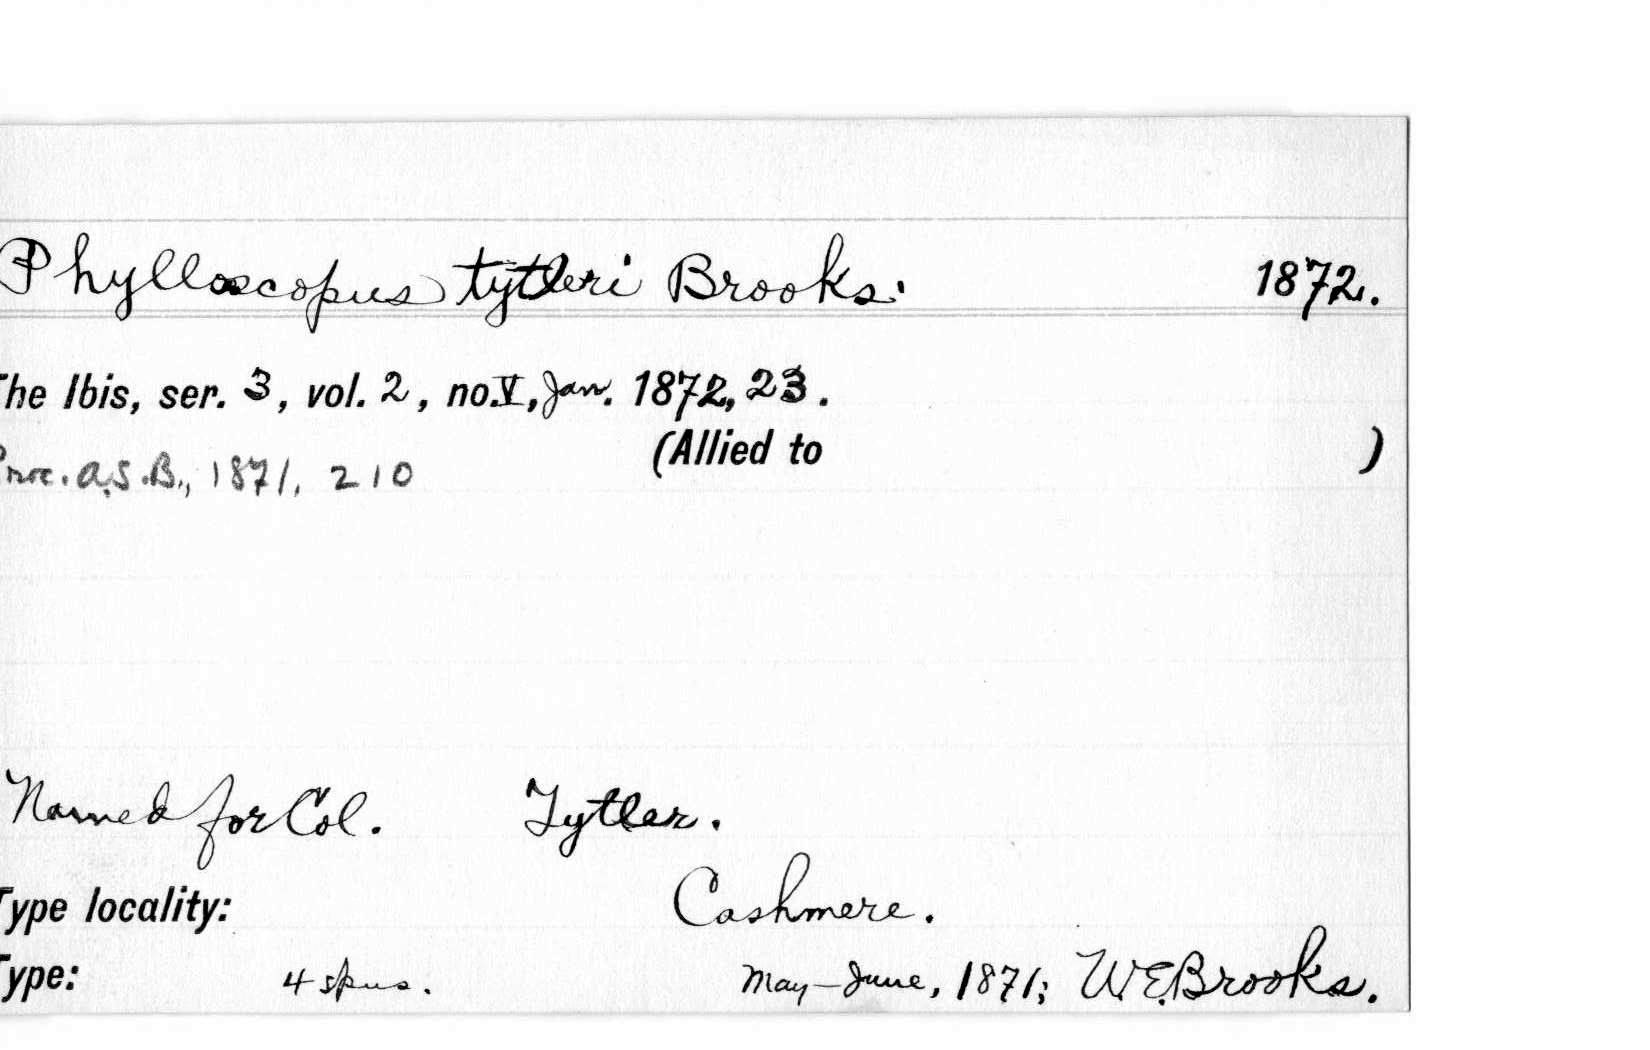 Phylloscopus tytleri Brooks. 1872.
The Ibis, ser. 3, vol. 2, no. V, Jan. 1872, 23.
(Allied to )
Proc. A.S.B., 1871, 210
Named for Col. Tytler.
Type locality: Cashmere.
Type: 4 spms. May-June, 1871; W.E. Brooks.